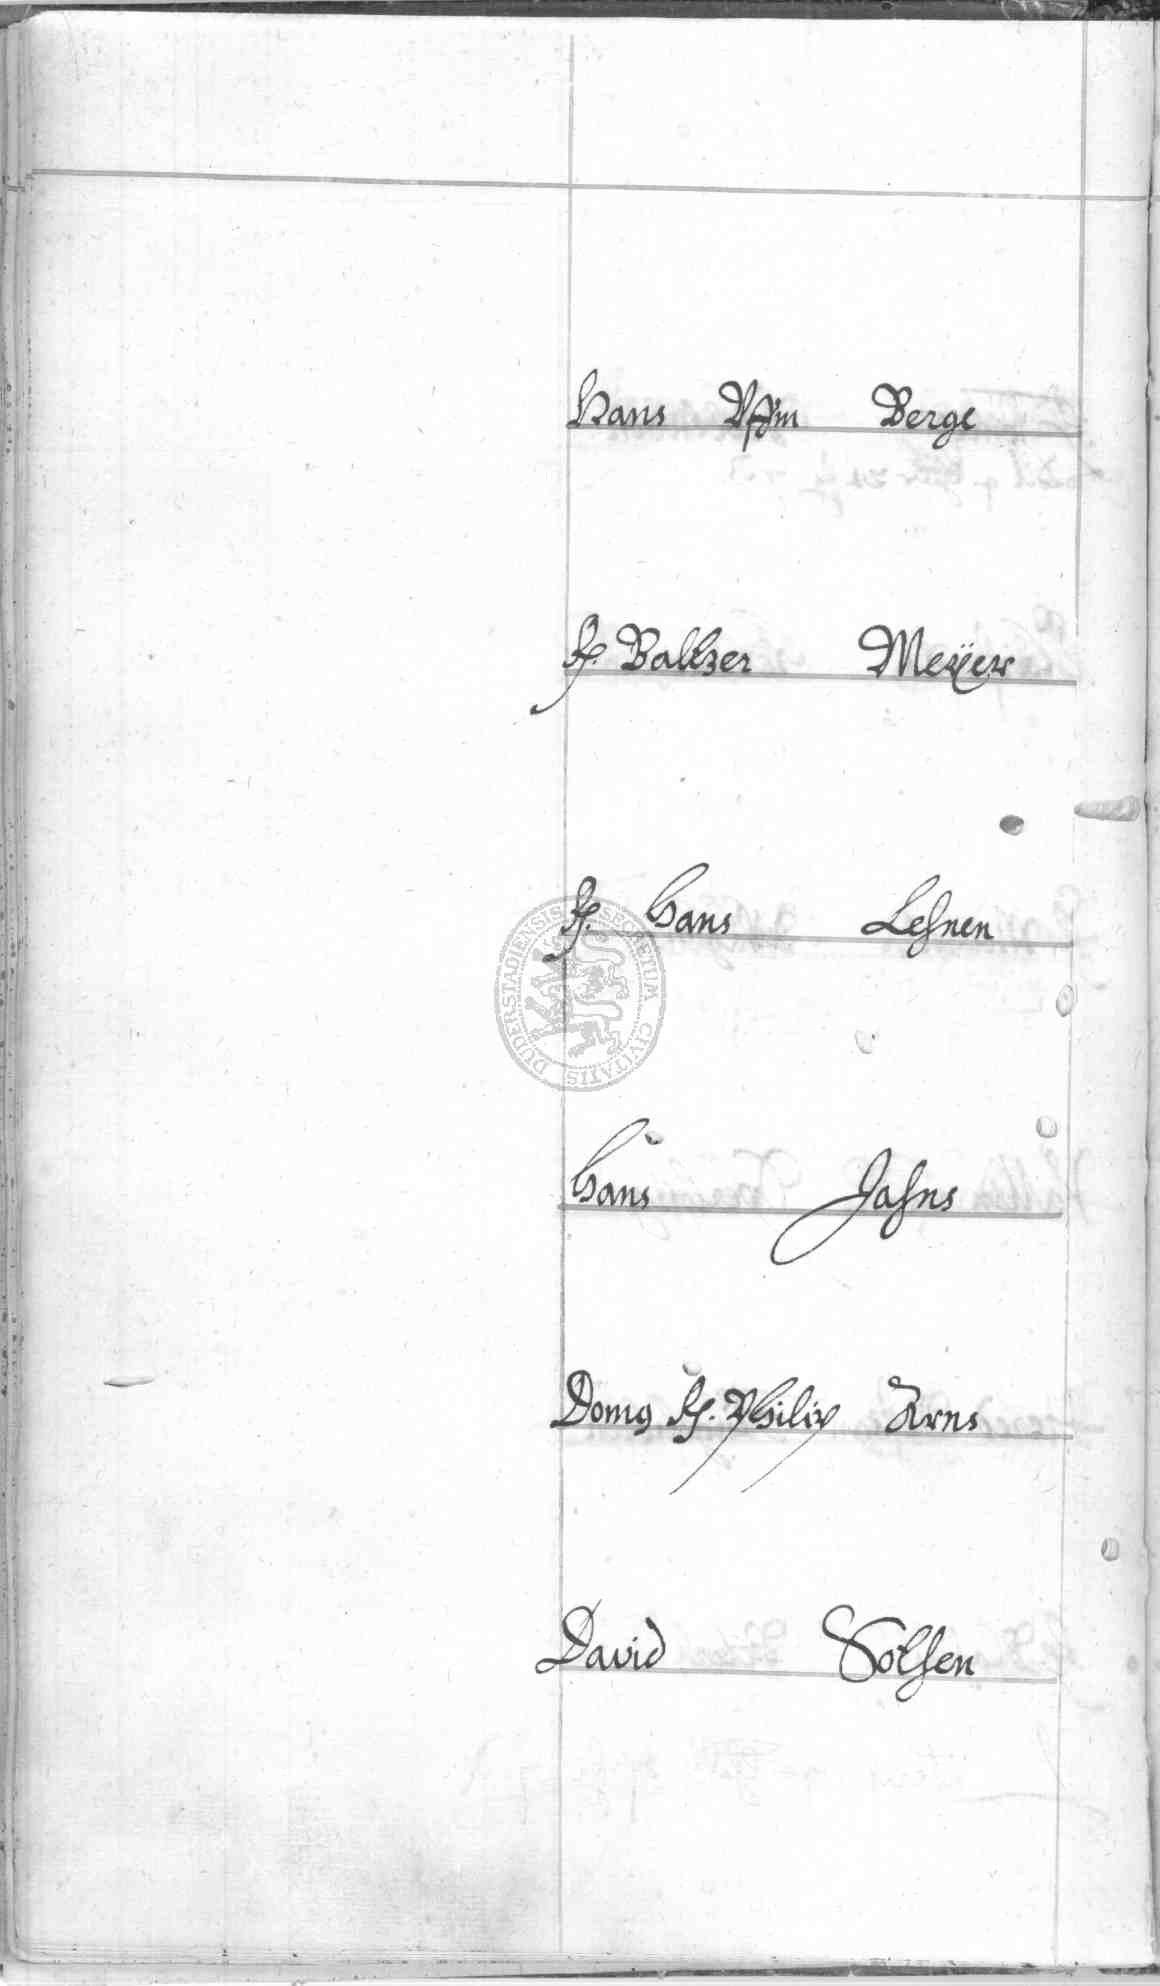 Hans Vffm Berge
H. Baltzer Meÿer
H. Hans Lehnen
SECRETUM CIVITATIS DUDERSTADIENSIS
Hans Jahns
Domg H. Philip Arns
David